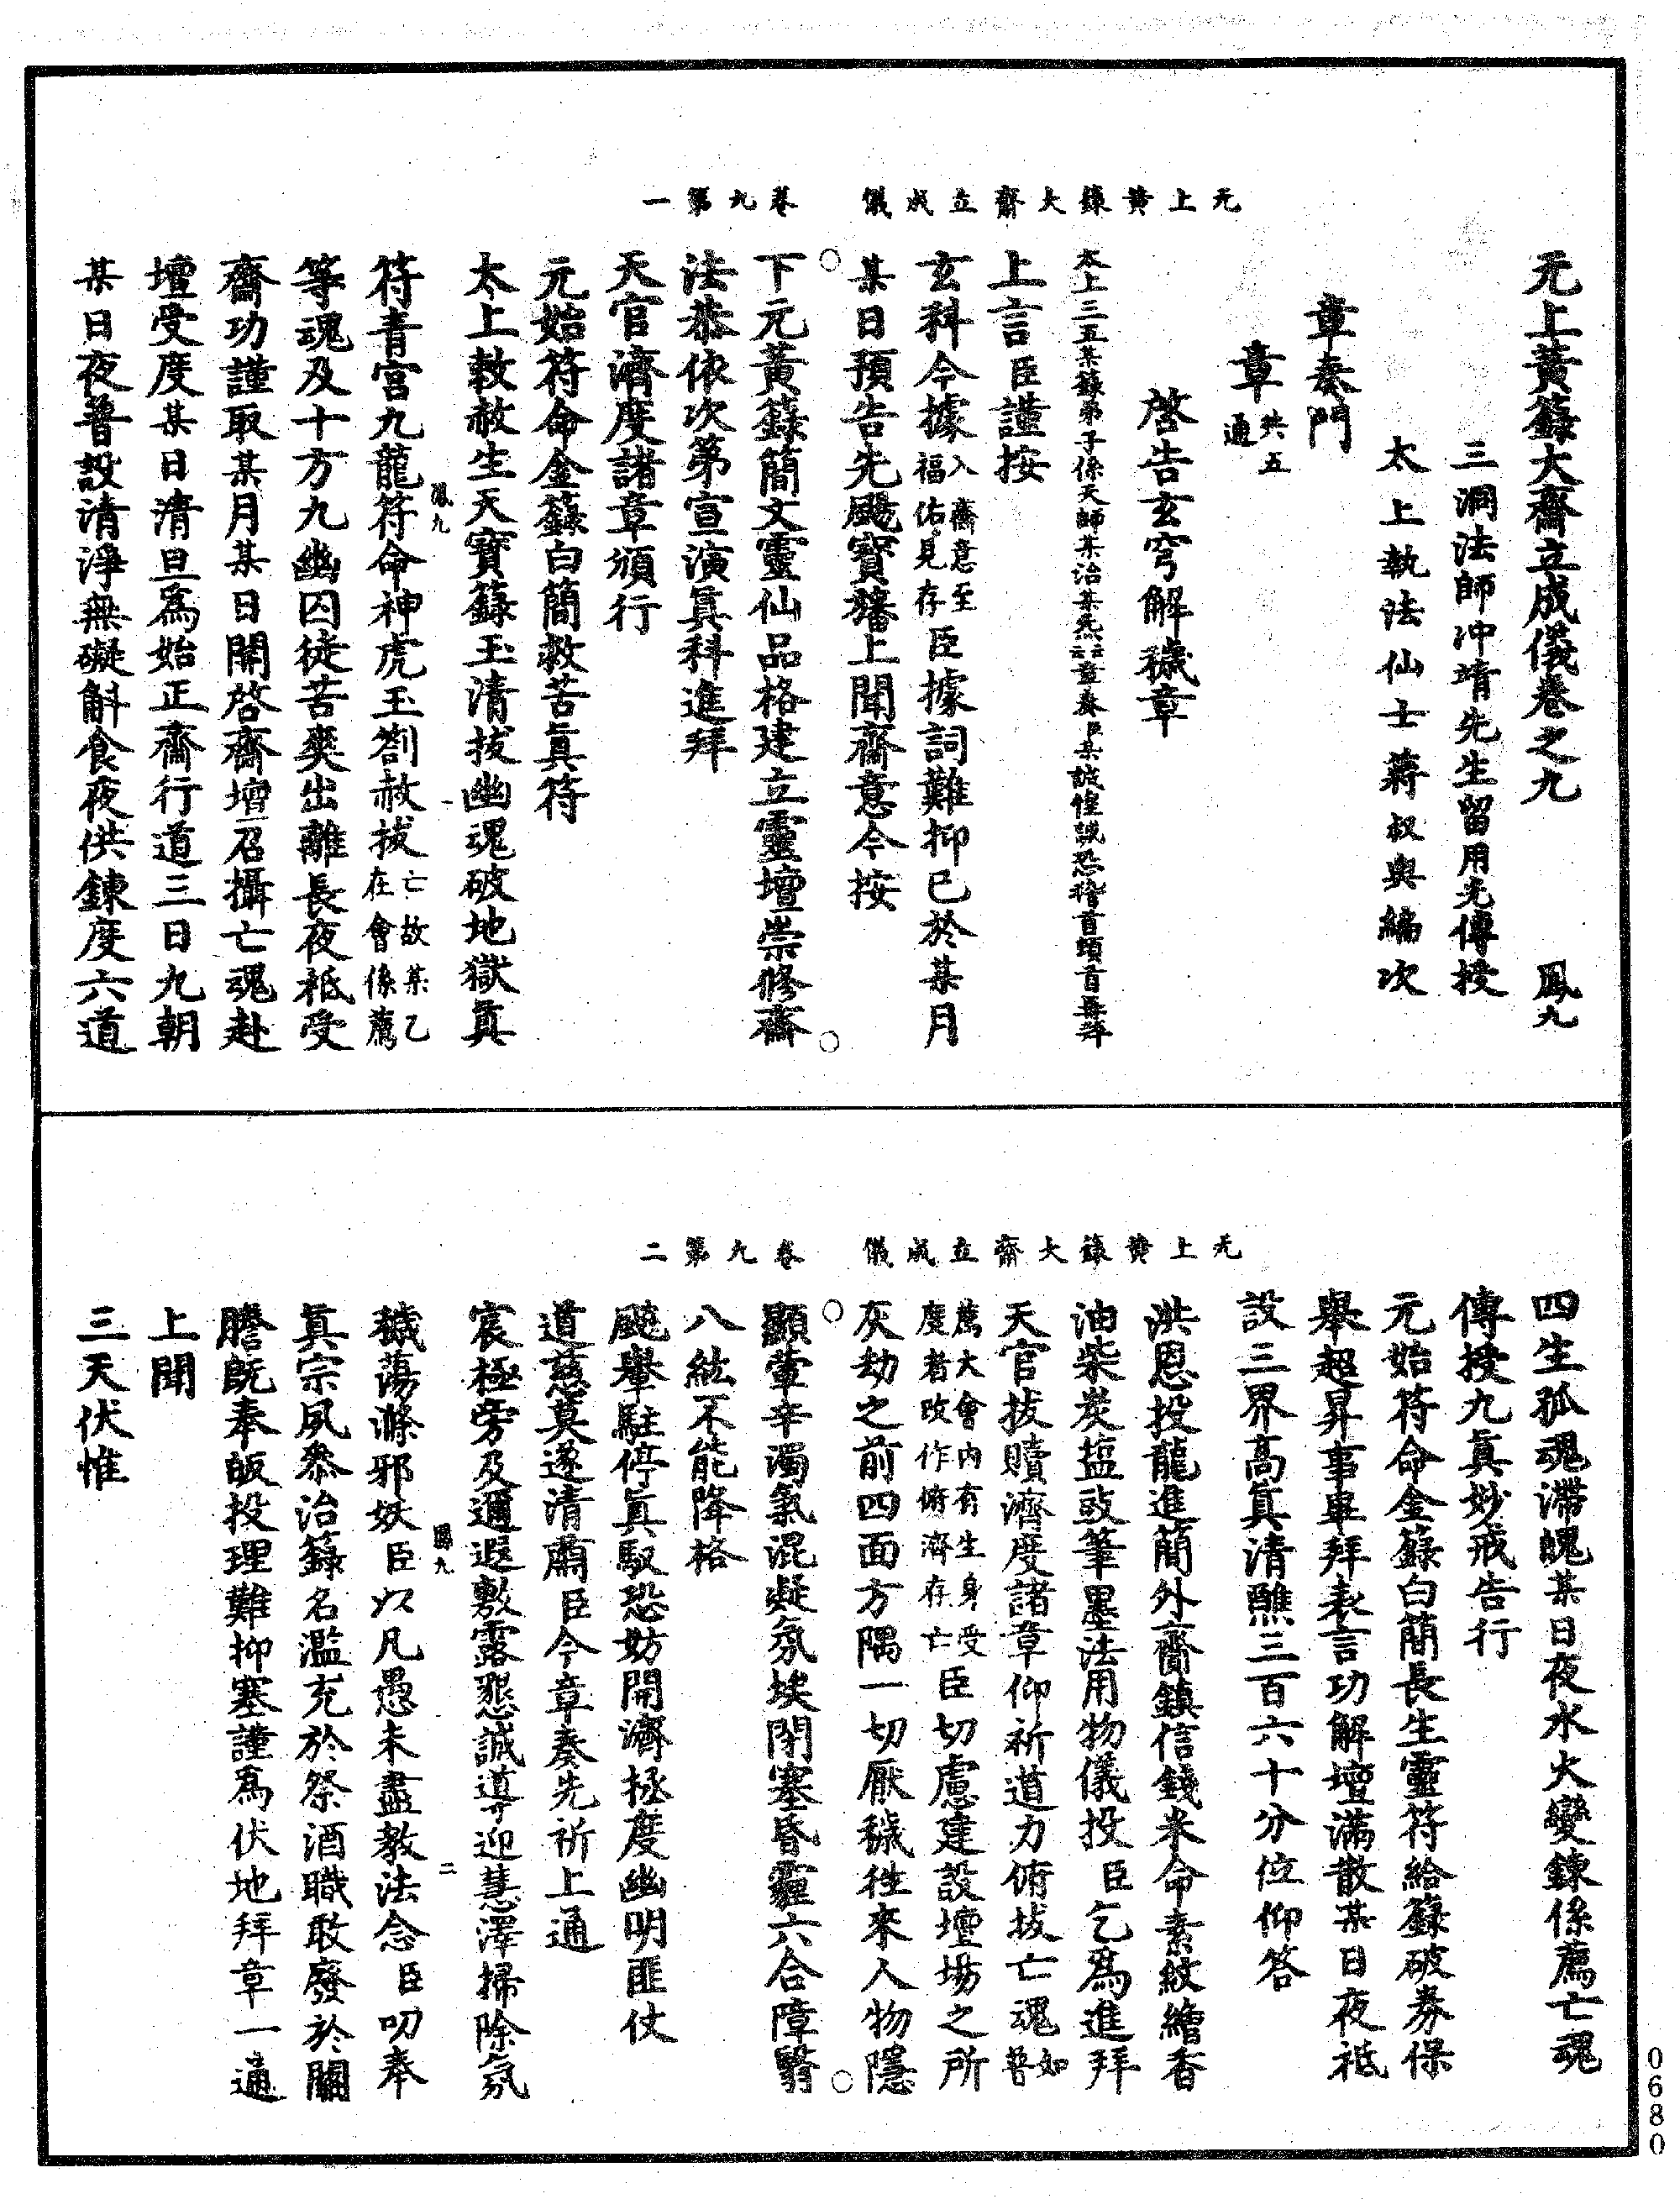 无上黃籙大齋立成儀卷之九 鳳九
三洞法師沖靖先生留用光傳授
太上執法仙士蔣叔輿編次
章奏門
章共五通
啓告玄穹解穢章
太上三五某籙弟子係天師某治某炁云云章奏臣某誠惶誠恐稽首頓首再拜
上言臣謹按
玄科今據入齋意至福佑見存臣據詞難抑已於某月
某日預告先颺寶旛上聞齋意今按
无上黃籙大齋立成儀 卷九第一
下元黃籙簡文靈仙品格建立靈壇崇修齋
法恭依次第宣演眞科進拜
天官濟度諸章頒行
元始符命金籙白簡救苦眞符
太上敕赦生天寶籙玉清拔幽魂破地獄眞
鳳九 一
符青宮九龍符命神虎玉劄赦拔亡故某乙在會係薦
等魂及十方九幽囚徒苦爽出離長夜祗受
齋功謹取某月某日開啓齋壇召攝亡魂赴
壇受度某日清旦爲始正齋行道三日九朝
某日夜普設清淨無礙斛食夜供鍊度六道
四生孤魂滯魄某日夜水火變鍊係薦亡魂
傳授九眞妙戒告行
元始符命金籙白簡長生靈符給籙破券保
舉超昇事畢拜表言功解壇滿散某日夜祗
設三界高眞清醮三百六十分位仰答
洪恩投龍進簡外齎鎮信錢米命素紋繒香
油柴炭鹽豉筆墨法用物儀投臣乞爲進拜
天官拔贖濟度諸章仰祈道力俯拔亡魂如普
薦大會內有生身受度者改作俯濟存亡臣切慮建設壇場之所
灰劫之前四面方隅一切厭穢徃來人物隱
无上黃籙大齋立成儀 卷九第二
顯葷辛濁氣混凝氛埃閉塞昏霾六合障翳
八紘不能降格
颷轝駐停眞馭恐妨開濟拯度幽明匪仗
道慈莫遂清肅臣今章奏先祈上通
宸極旁及邇遐敷露懇誠導迎慧澤掃除氛
鳳九 二
穢蕩滌邪妖臣以凡愚未盡教法念臣叨奉
眞宗夙叅治籙名濫充於祭酒職敢廢於關
謄旣奉皈投理難抑塞謹爲伏地拜章一通
上聞
三天伏惟
0680